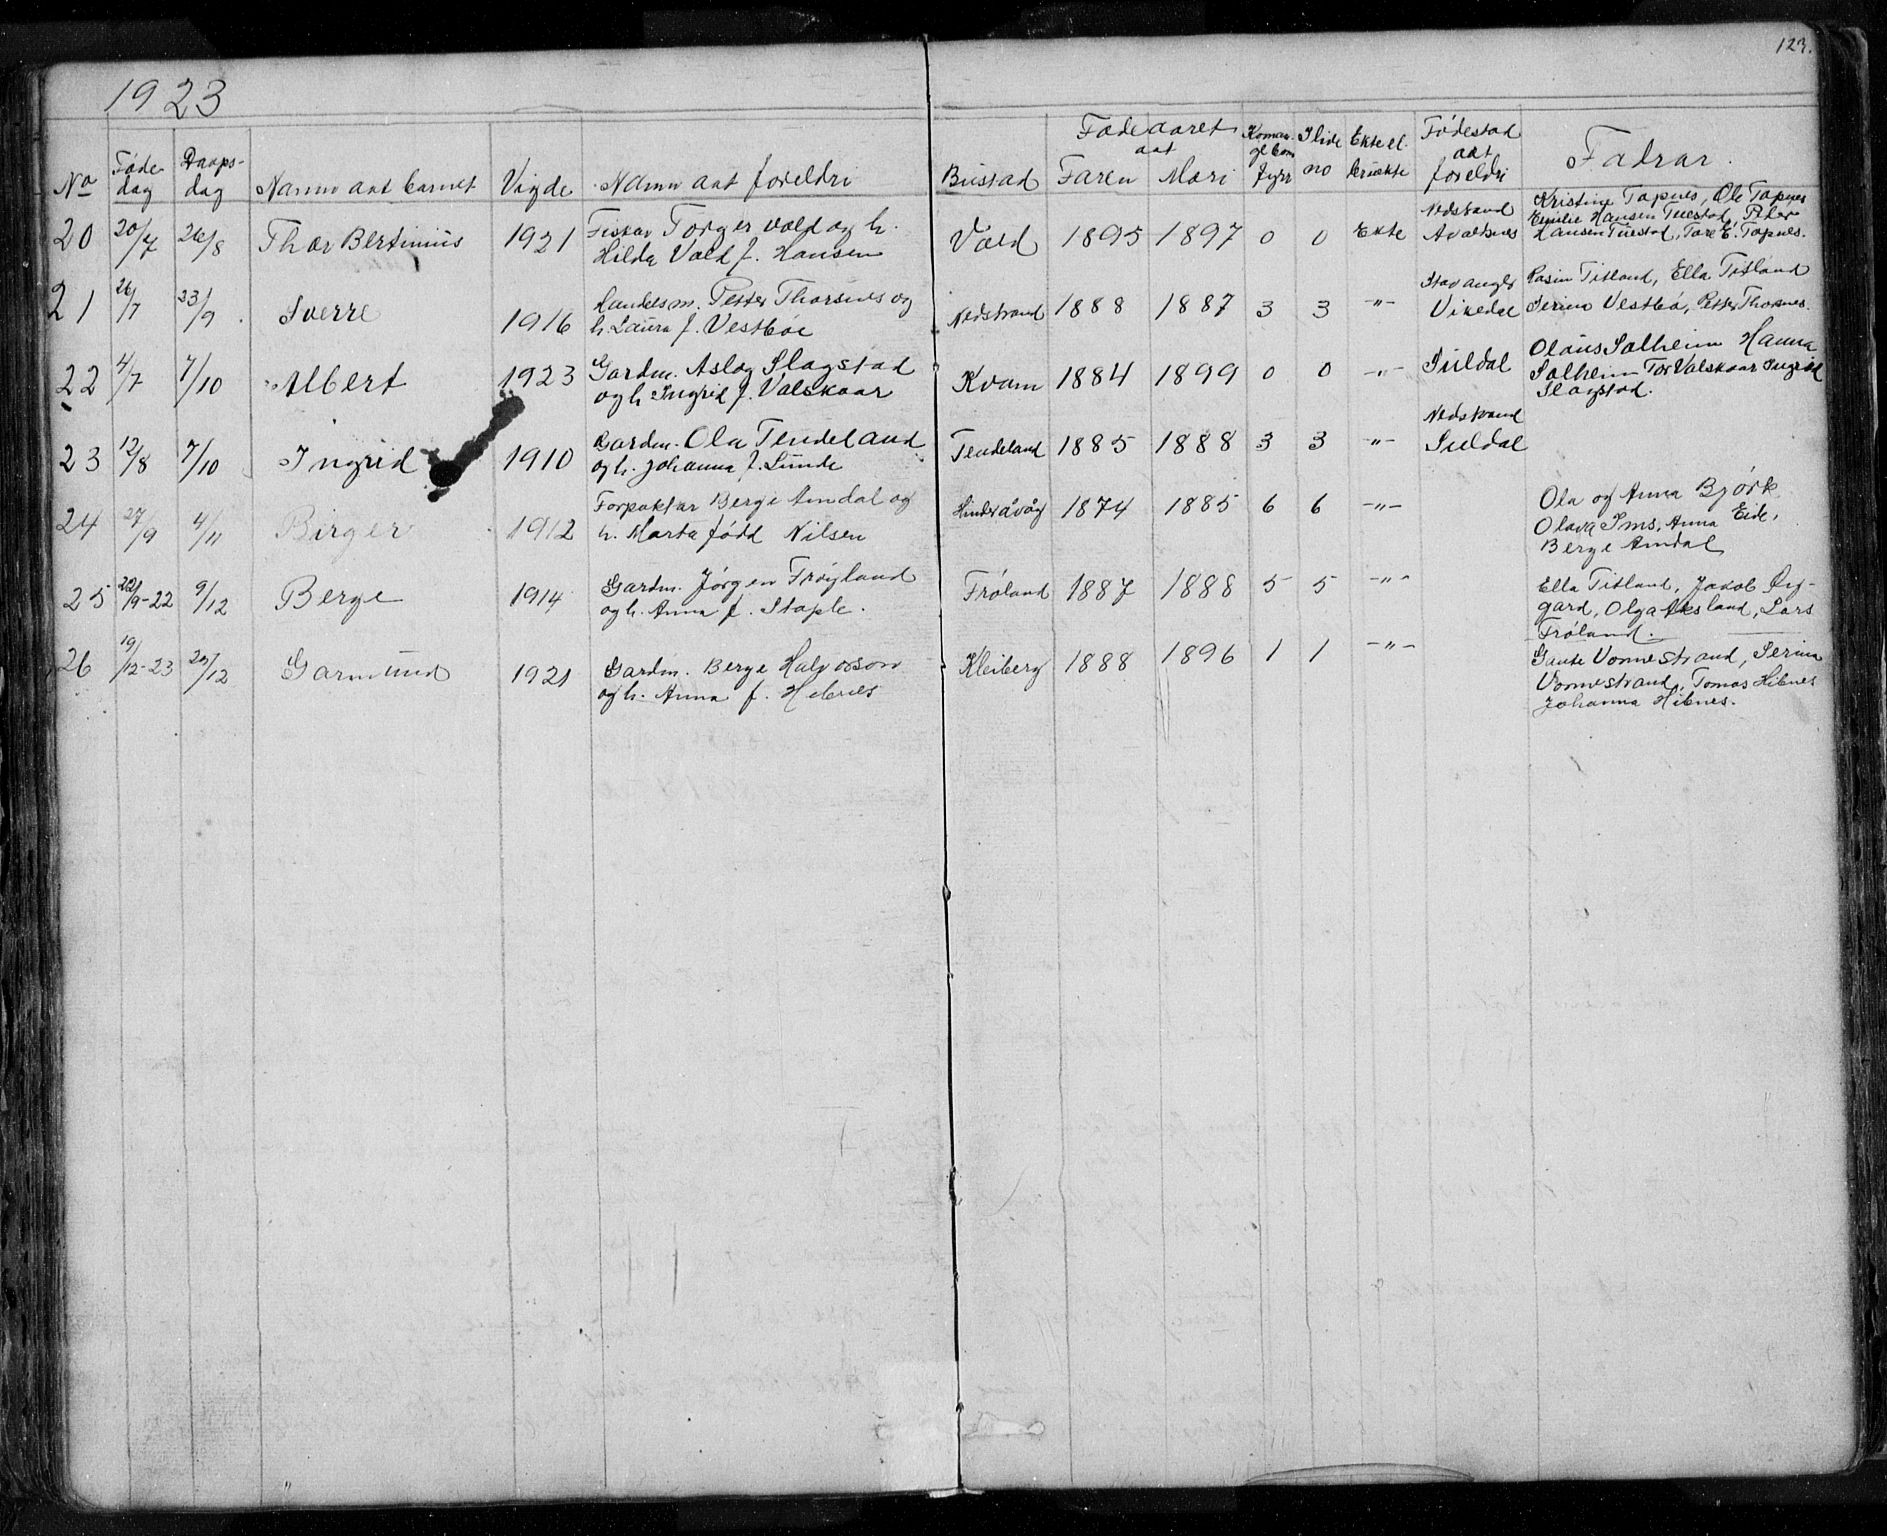 123.
1923
No Føde dag Daaps- dag Namn aat barnet Vigde Namn aat foreldri Bustad Fødeaaret aat Faren Mori Ilive no Ekte el. Fødestad aat foreldri Fadrar.
20 20/7 26/8 Thor Bertinius 1921 Fiskar Torger Vald og h. Vald 1895 1897 0 0 Ekte Nedstrand Kristine Tapnes, Ole Tapnes
Hilda Vald f. Hansen Avaldsnes Emilie Hansen Tuestad, Peter
Hansen Tuestad, Tore E. Tapnes.
21 26/7 23/9 Sverre 1916 Handelsm. Petter Thorsnes og Nedstrand 1888 1887 3 3 -"- Stavanger Rasin Titland, Ella Titland
h. Laura f. Vestbøe Vikedal Serina Vestbø, Petter Thorsnes.
22 4/7 7/10 Albert 1923 Gardm. Aslag Slagstad Kvam 1884 1899 0 0 -"- Suldal Olaus Solheim Hanna
og h. Ingrid f. Valskaar Solheim Tor Valskaar Ingrid
Slagstad.
23 12/8 7/10 Ingrid 1910 Gardm. Ola Tendeland Tendeland 1885 1888 3 3 -"- Nedstrand
og h. Johanna f. Lunde Suldal
24 27/9 4/11 Birger 1912 Forpaktar Berge Amdal og Hinderåvåg 1874 1885 6 6 -"- Ola og Anna Bjørk
h. Marta fødd Nilsen Olava Ims, Anna Eide,
Berge Amdal
25 22/9-22 9/12 Berge 1914 Gardm. Jørgen Frøyland Frøland 1887 1888 5 5 -"- Ella Titland, Jakob Øy-
og h. Anna f. Stople. gard, Olga Aksland, Lars
Frøland.
26 19/12-23 /12 Garmund 1921 Gardm. Berge Halvorson Kleiberg 1888 1896 1 1 -"- Gaute Vormestrand, Serina
og h. Anna f. Hibnes Vormestrand, Tomas Hibnes
Johanna Hibnes.